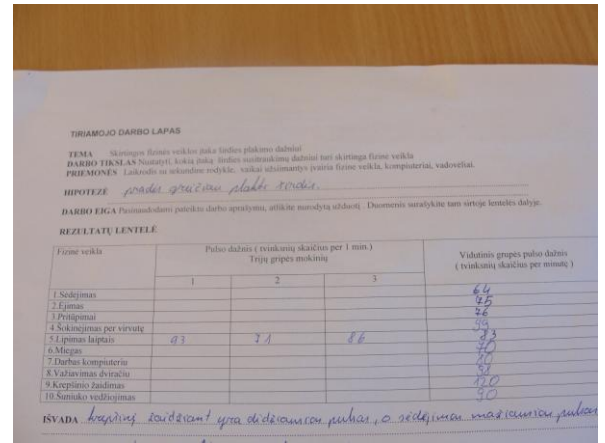 TIRIAMOJO DARBO LAPAS
TEMA Skirtingos fizinės veiklos įtaka širdies plakimo dažniui
DARBO TIKSLAS Nustatyti, kokią įtaką širdies susitraukimų dažniui turi skirtinga fizinė veikla
PRIEMONĖS Laikrodis su sekundine rodykle, vaikai užsiimantys įvairia fizine veikla, kompiuteriai, vadovėliai.
HIPOTEZĖ pradės greičiau plakti širdis.
DARBO EIGA Pasinaudodami pateikto darbo aprašymu, atlikite nurodytą užduotį. Duomenis surašykite tam skirtoje lentelės dalyje.
REZULTATŲ LENTELĖ
Fizinė veikla Pulso dažnis ( tvinksnių skaičius per 1 min.) Vidutinis grupės pulso dažnis
Trijų grupės mokinių ( tvinksnių skaičius per minutę )
1 2 3
1.Sėdėjimas 64
2.Ėjimas 75
3.Pritūpimai 76
4.Šokinėjimas per virvutę 99
5.Lipimas laiptais 93 71 86 83
6.Miegas 70
7.Darbas kompiuteriu
8.Važiavimas dviračiu 98
9.Krepšinio žaidimas 120
10.Šuniuko vedžiojimas 90
IŠVADA krepšinį žaidžiant yra didžiausias pulsas, o sėdėjimas mažiausias pulsas